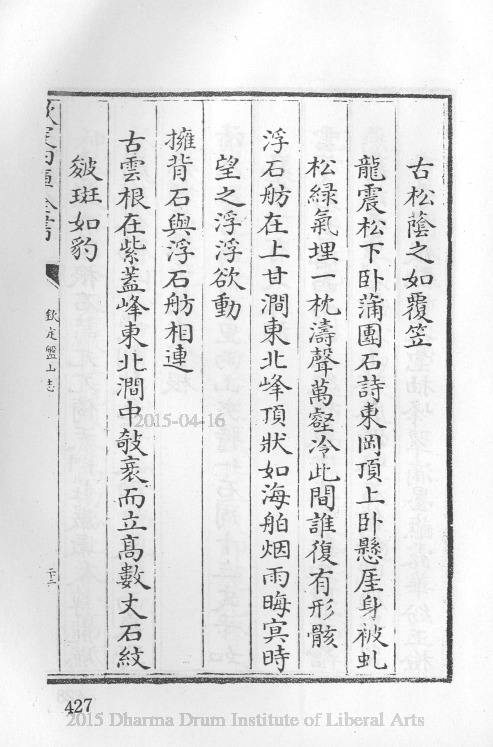 古松蔭之如覆笠
龍震松下卧蒲團石詩東岡頂上卧懸厓身被虬
松綠氣埋一枕濤聲萬壑冷此間誰復有形骸
浮石舫在上甘澗東北峰頂狀如海舶烟雨晦冥時
望之浮浮欲動
擁背石與浮石舫相連
古雲根在紫蓋峰東北澗中攲衺而立高數丈石紋
皴斑如豹
欽定四庫全書
欽定盤山志
427
2015-04-16
2015 Dharma Drum Institute of Liberal Arts